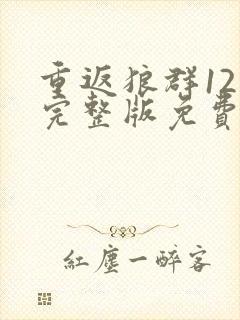 重返狼群12
完整版免費
紅塵一醉客